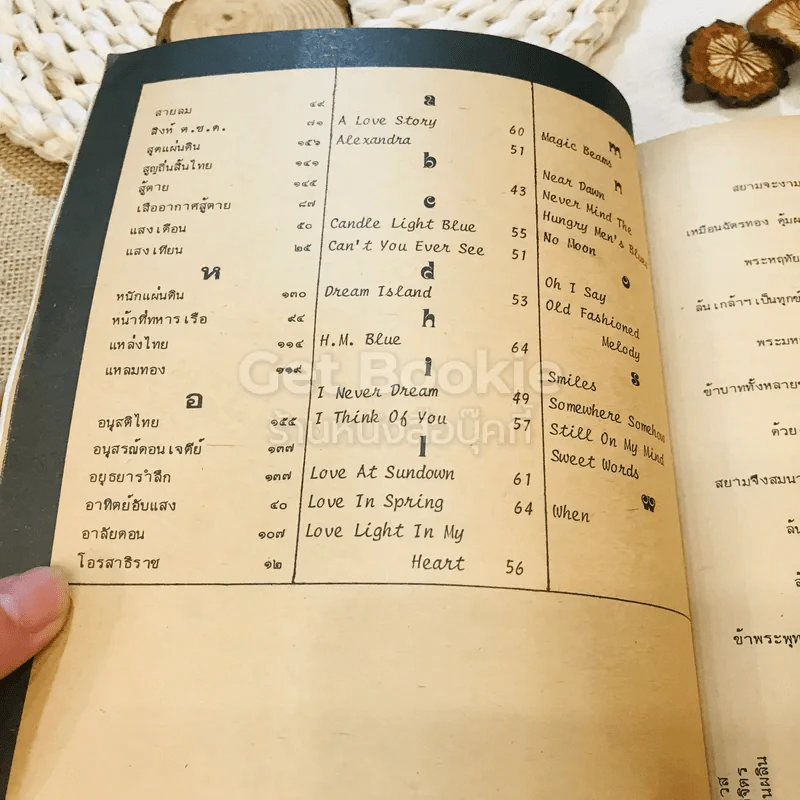 สายลม ๔๙
สิงห์ ต.ช.ด. ๗๑
สุดแผ่นดิน ๑๕๖
สูญสิ้นไทย ๑๔๑
สู้ตาย ๑๔๕
เสืออากาศสู้ตาย ๘๗
แสงเดือน ๕๐
แสงเทียน ๒๕
ห
หนักแผ่นดิน ๑๓๐
หน้าที่ทหารเรือ ๙๔
แหล่งไทย ๑๑๔
แหลมทอง ๑๑๙
อ
อนุสติไทย ๑๕๕
อนุสรณ์ดอนเจดีย์ ๑๓๗
อยุธยารำลึก ๑๓๗
อาทิตย์อับแสง ๔๐
อาลัยดอน ๑๐๗
โอรสาธิราช ๑๒
a
A Love Story 60
Alexandra 51
b
43
c
Candle Light Blue 55
Can't You Ever See 51
d
Dream Island 53
h
H.M. Blue 64
i
I Never Dream 49
I Think Of You 57
l
Love At Sundown 61
Love In Spring 64
Love Light In My
Heart 56
m
Magic Beams
n
Near Dawn
Never Mind The
Hungry Men's Blues
No Moon
o
Oh I Say
Old Fashioned
Melody
s
Smiles
Somewhere Somehow
Still On My Mind
Sweet Words
w
When
Get Bookie
ร้านหนังสือบุ๊คกี้
สยามจะงาม
เหมือนฉัตรทอง คุ้มผ
พระหฤทัย
ล้นเกล้าฯ เป็นทุกข์
พระมห
ข้าบาททั้งหลาย
ด้วย
สยามจึงสมนา
ล้น
ข้าพระพุท